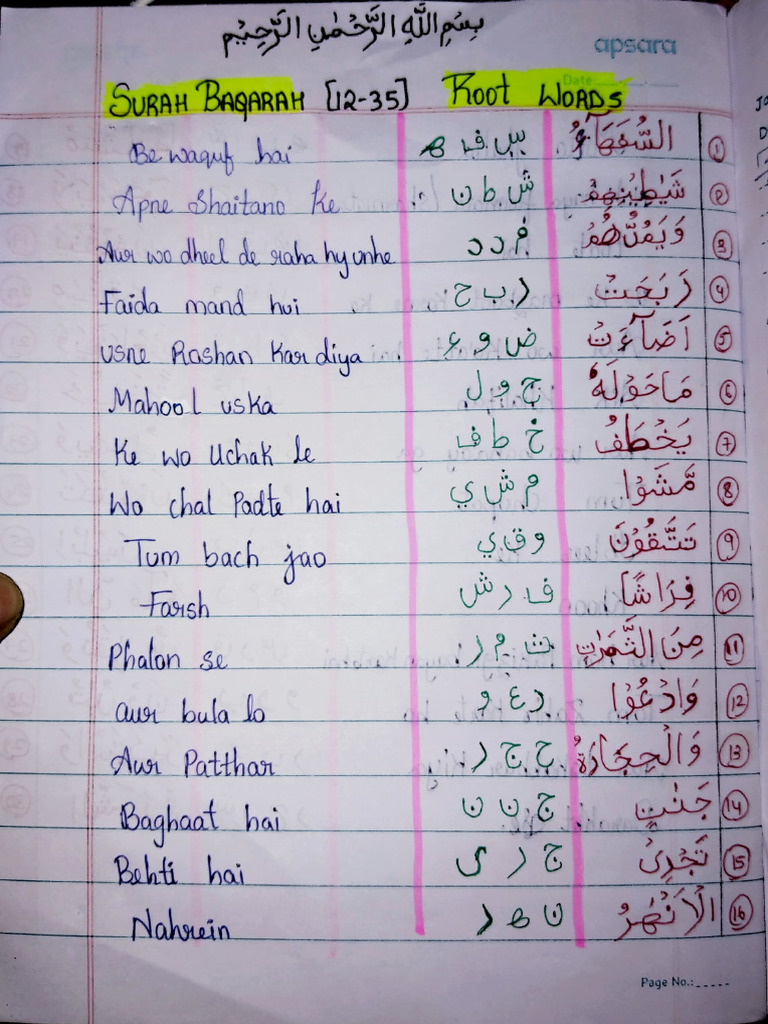 بِسْمِ اللَّهِ الرَّحْمٰنِ الرَّحِيْمِ
apsara
Date:
SURAH BAQARAH [12-35] Root WORDS
Be waquf hai س ف ھ السُّفَهَآءُ ①
Apne Shaitano ke ش ط ن شَيٰطِيْنِهِمْ ②
Aur wo dheel de raha hy unhe م د د وَيَمُدُّهُمْ ③
Faida mand hui ر ب ح رَبِحَتْ ④
usne Roshan Kar diya ض و ء اَضَآءَتْ ⑤
Mahool uska ج و ل مَاحَوْلَهٗ ⑥
Ke wo Uchak le خ ط ف يَخْطَفُ ⑦
Wo chal Padte hai م ش ي مَّشَوْا ⑧
Tum bach jao و ق ي تَتَّقُوْنَ ⑨
Farsh ف ر ش فِرَاشًا ⑩
Phalon se ث م ر مِنَ الثَّمَرٰتِ ⑪
aur bula lo د ع و وَادْعُوْا ⑫
Aur Patthar ح ج ر وَالْحِجَارَةُ ⑬
Baghaat hai ج ن ن جَنّٰتٍ ⑭
Behti hai ج ر ى تَجْرِىْ ⑮
Nahrein ن ھ ر الْاَنْهٰرُ ⑯
Page No.: